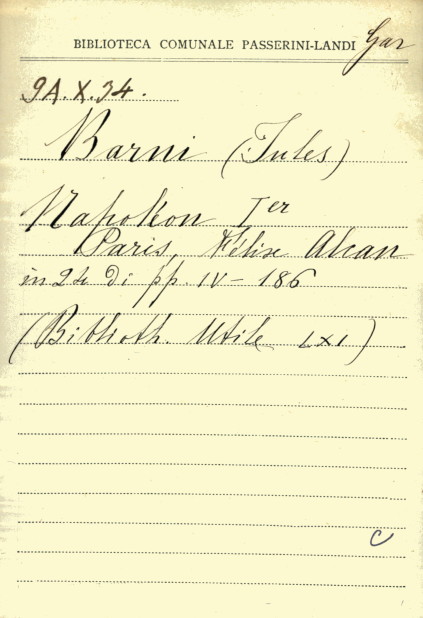 BIBLIOTECA COMUNALE PASSERINI-LANDI Gar
9A.X.34.
Barni (Jules)
Napoléon Ier
Paris, Félix Alcan
in 24 di pp. IV - 186
(Biblioth. Utile LXI)
C